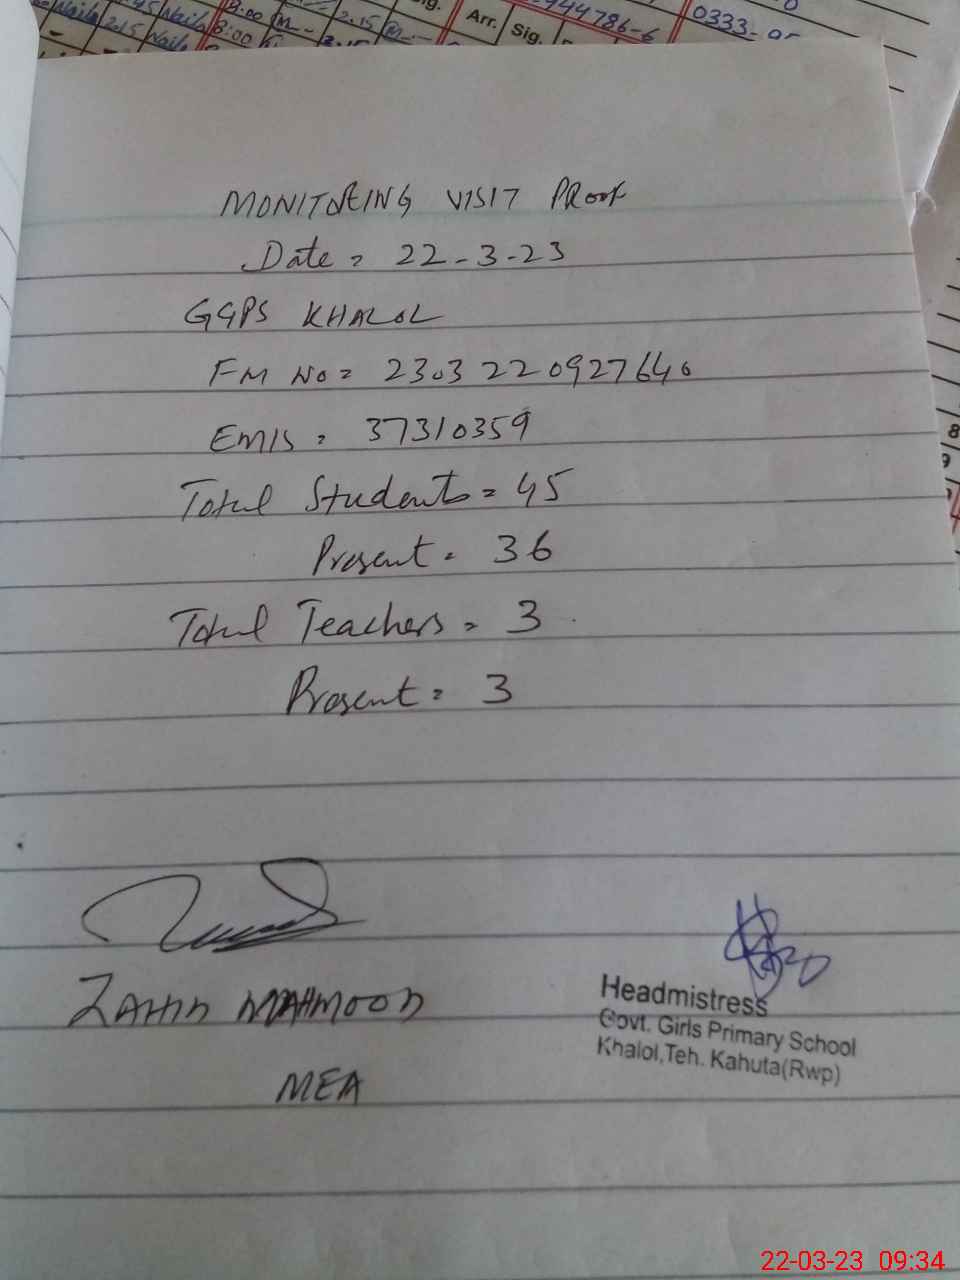 Naila 2.15 Naila 8:00 2.15
Arr. Sig.
944786-6
0333-
MONITORING VISIT PROOF
Date = 22-3-23
GGPS KHALOL
FM No = 2303220927640
EMIS = 37310359
Total Students = 45
Present = 36
Total Teachers = 3
Present = 3
ZAHID MAHMOOD
MEA
Headmistress
Govt. Girls Primary School
Khalol,Teh. Kahuta(Rwp)
8
9
22-03-23 09:34